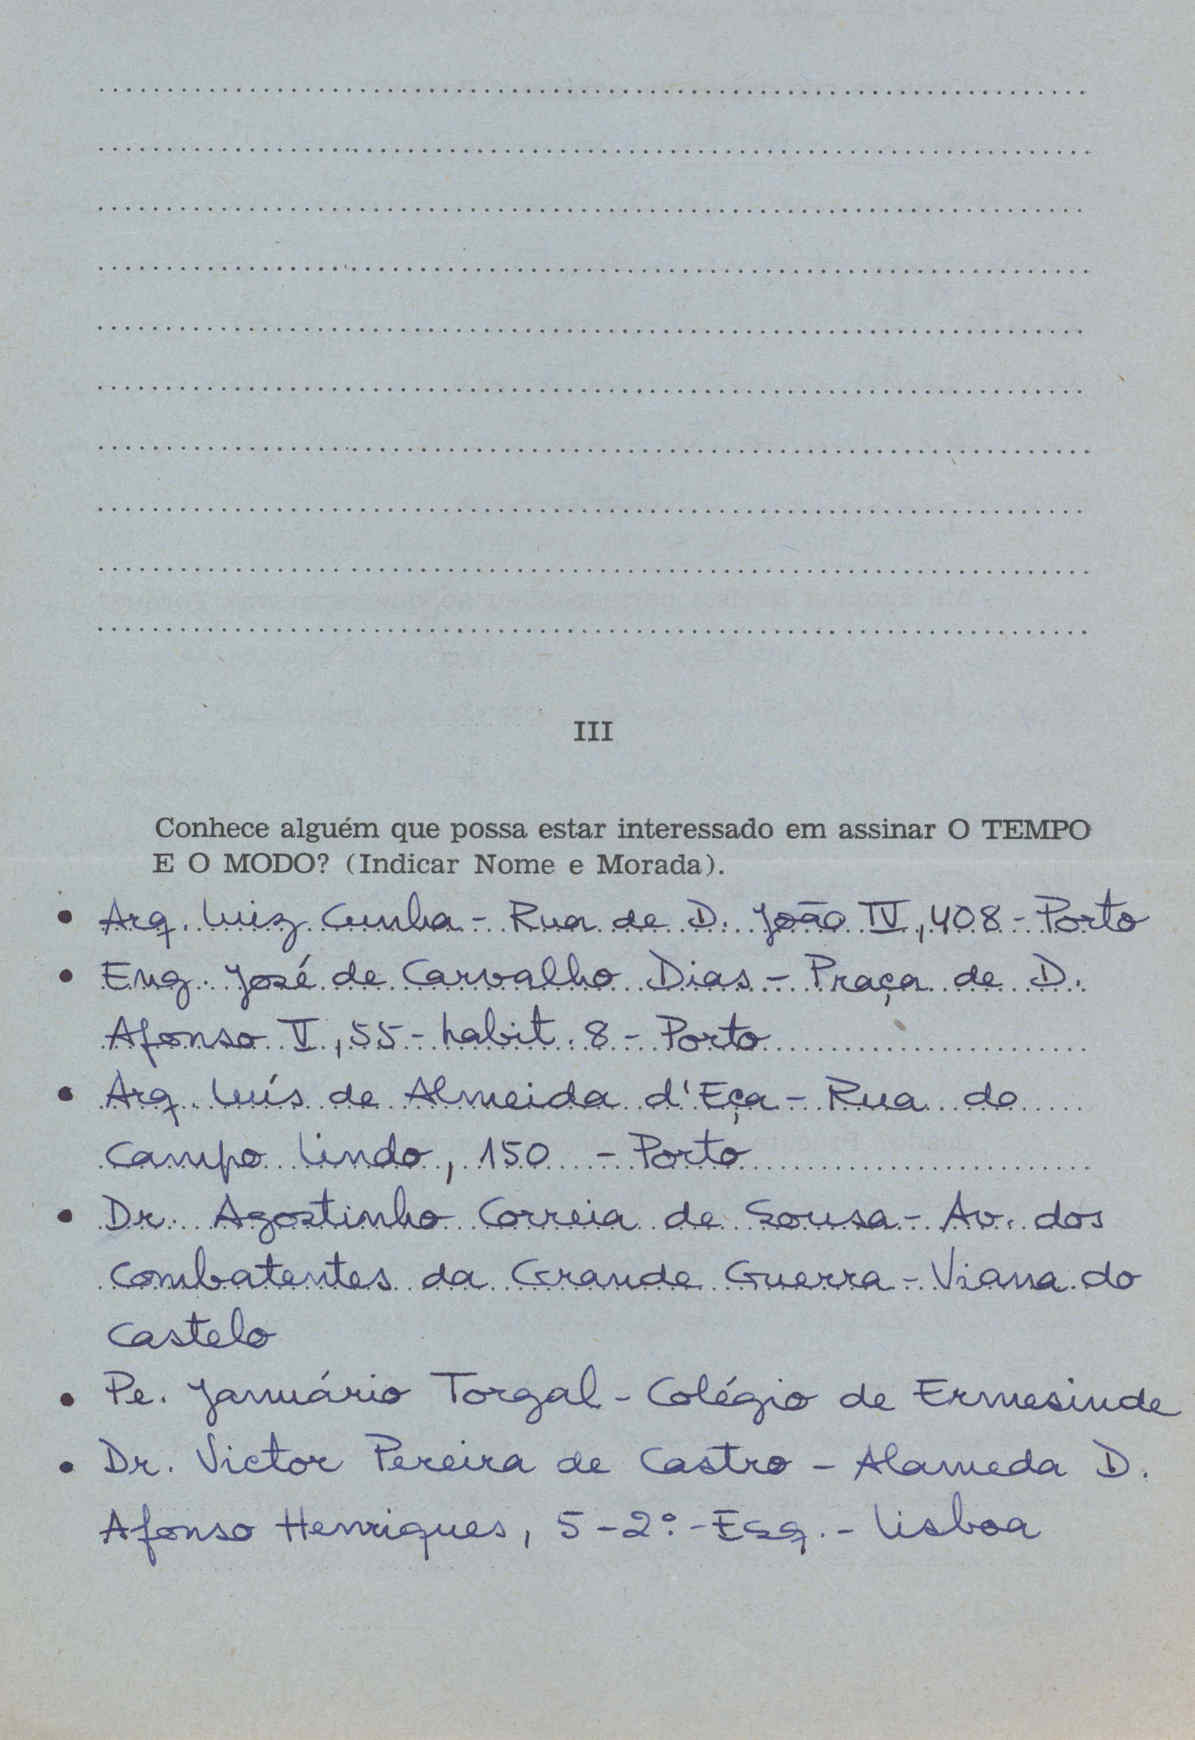 III
Conhece alguém que possa estar interessado em assinar O TEMPO
E O MODO? (Indicar Nome e Morada).
• Arq. Luiz Cunha - Rua de D. João IV, 408 - Porto
• Eng. José de Carvalho Dias - Praça de D.
Afonso V, 55 - habit. 8 - Porto
• Arq. Luís de Almeida d'Eça - Rua do
Campo Lindo, 150 - Porto
• Dr. Agostinho Correia de Sousa - Av. dos
Combatentes da Grande Guerra - Viana do
Castelo
• Pe. Januário Torgal - Colégio de Ermesinde
• Dr. Victor Pereira de Castro - Alameda D.
Afonso Henriques, 5 - 2º - Esq. - Lisboa